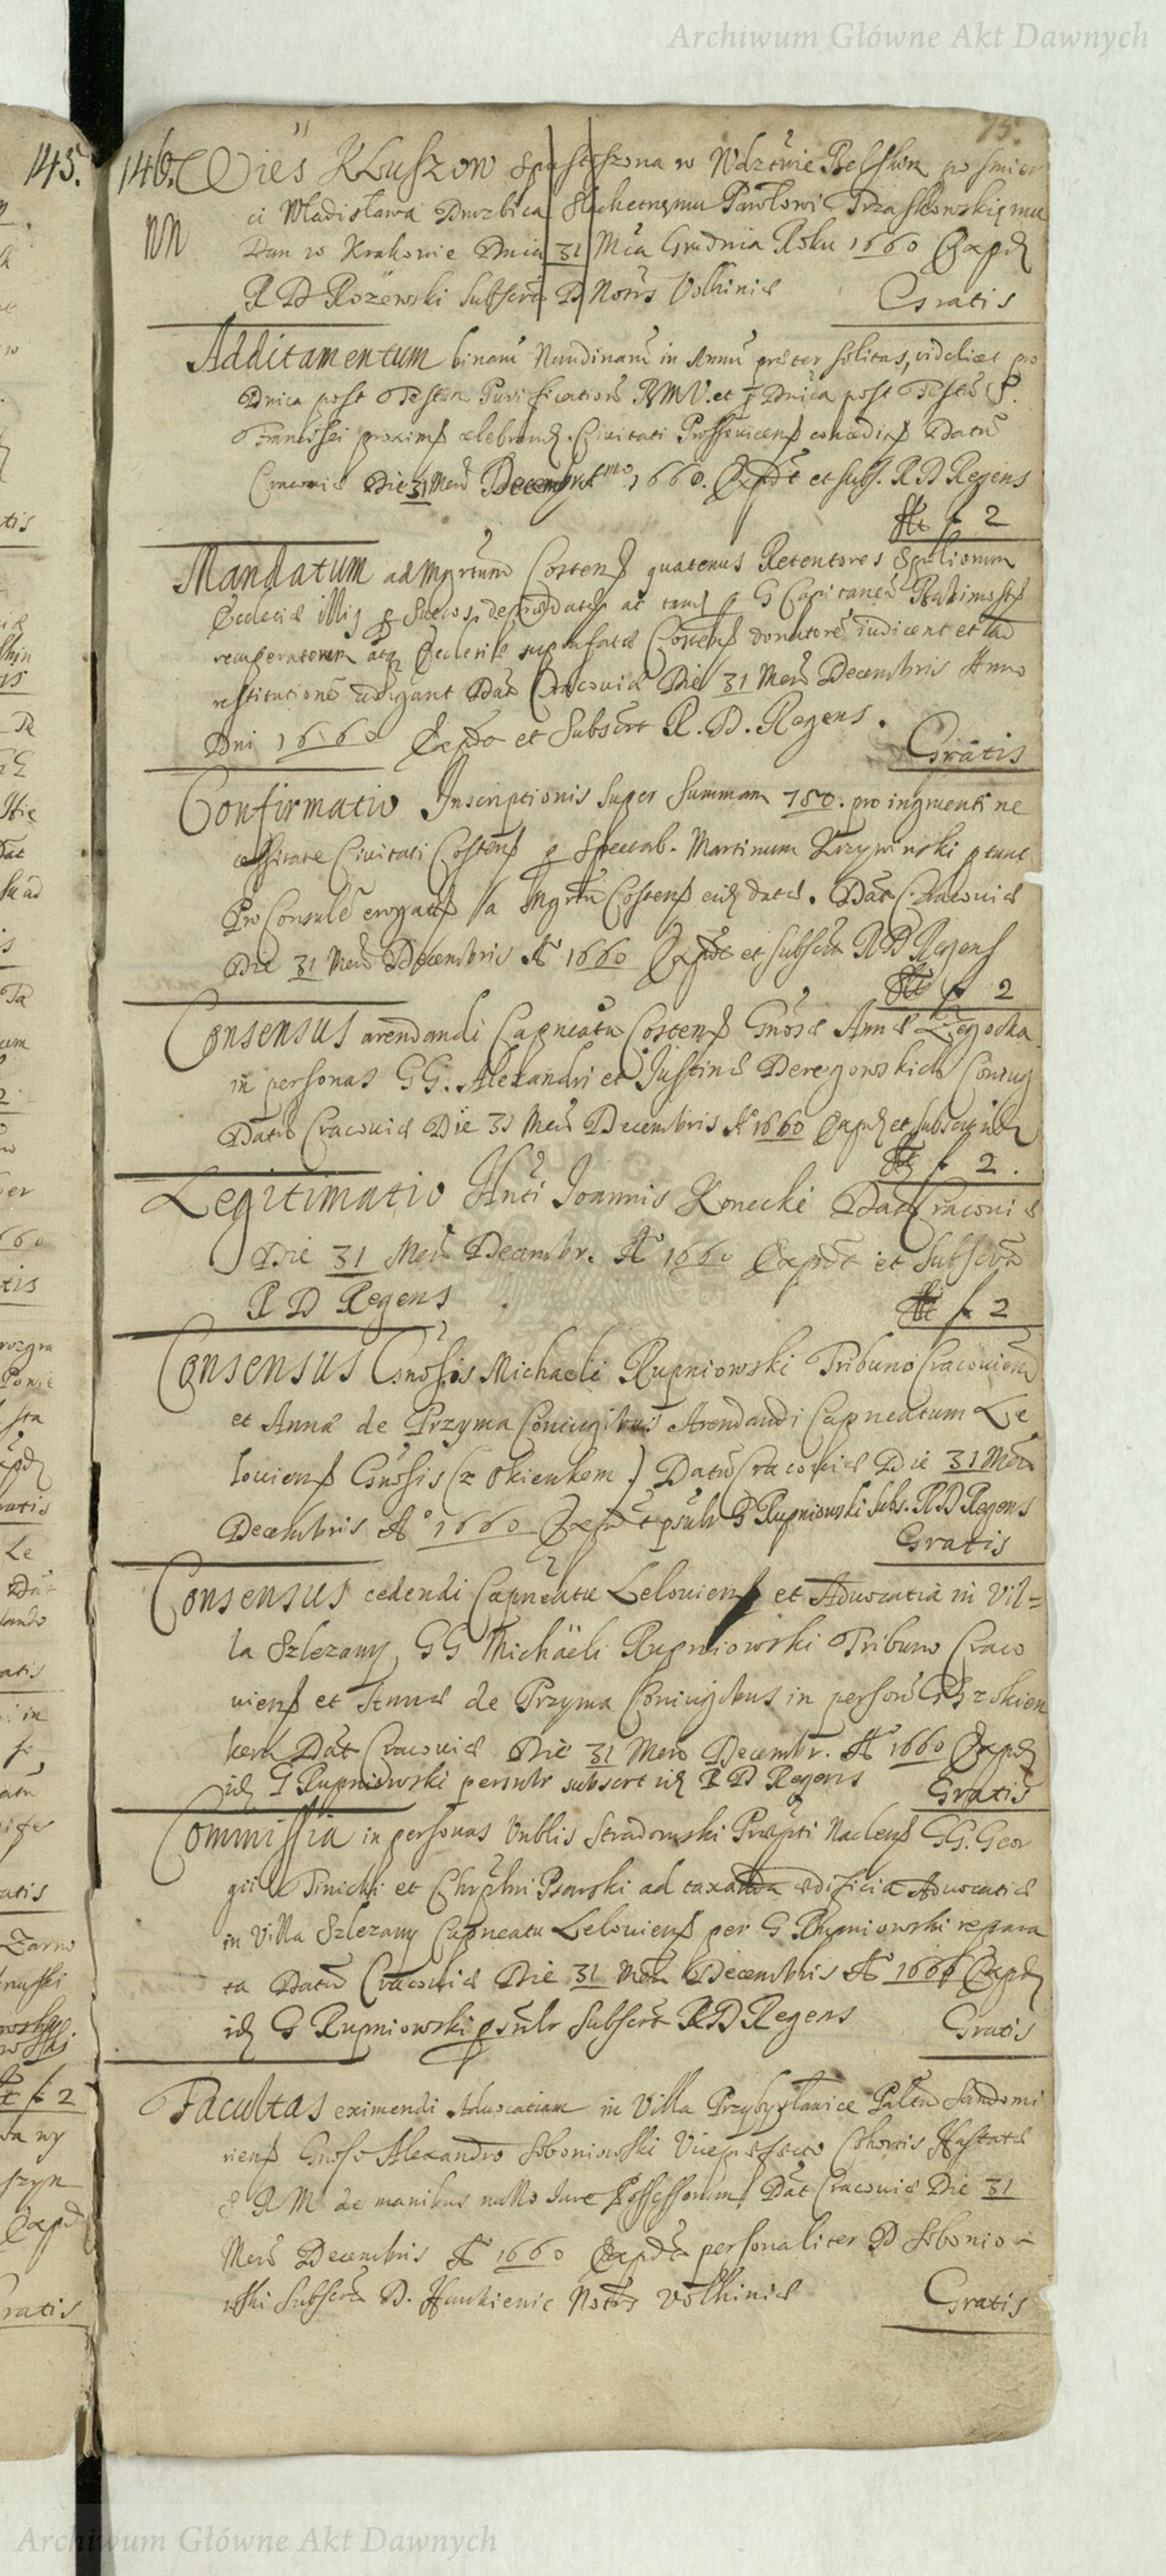 Archiwum Główne Akt Dawnych
75.
145.
146. Wieś Kluszow spustoszona w Wdztwie Belskim po śmier
NN
ci Wladisława Druzbica Slachetnęmu Pawłowi Trzaskowskięmu
Dan w Krakowie Dnia 31 Mca Grudnia Roku 1660 Expd
R D Rozewski subscrt D Notrs Volhiniæ Gratis
Additamentum binarū Nundinarū in Annū præter solitas, videlicet pro
Dnica post Festum Purificationis BMV. et p Dnica post Festū S.
Francisci proximß celebrand. Civitati Prossovicenß concedit Datū
Cracoviæ Die 31 Mens Decembr 1660. Expdt et subs. R D Regens
ft f 2
Mandatum ad Mgrtum Costenß quatenus Retentores Spoliorum
Ecclesiæ illis p Suecos deprædatæ ac tand p G Capitaneū
recuperatorum atq Ecclesiæ suprafatæ Costenß donatorū iudicent et ad
restitutionē adigant Dat Cracoviæ Die 31 Mens Decembris Anno
Dni 1660 Expdt et Subscrt R. D. Regens.
Gratis
Confirmatio Inscriptionis super summam 750. pro ingruenti ne
cessitate Civitati Costenß p Spectab. Martinum Krzywinski ptunc
Pro Consulē erogatß a Mgrtū Costenß eid datæ. Dat Cracoviæ
Die 31 Mens Decembris Aº 1660 Expdt et subscrt R D Regens
ft f 2
Consensus arendandi Capneatū Costenß Gnosæ Annæ Zegocka
in personas GG. Alexandri et Justinæ Deregowskich Coniug
Datū Cracoviæ Die 31 Mens Decembris Aº 1660 Expd et subscr
ft f 2.
Legitimatio Hnti Joannis Konecki Dat Cracoviæ
Die 31 Mens Decembr. Aº 1660 Expdt et Subscrt
R D Regens
ft f 2
Consensus Gnosis Michaeli Rupniowski Tribuno Cracovienß
et Annæ de Przyma Coniugibus Arendandi Capneatum Le
lovienß Gnosis (z Okienkem) Datū Cracoviæ Die 31 Mens
Decembris Aº 1660 Expdt psnlr G Rupniowski subs. R D Regens
Gratis
Consensus cedendi Capneatu Lelovienß et Advocatia in Vil=
la Szlezany GG Michaëli Rupniowski Tribuno Craco
vienß et Annæ de Przyma Coniugibus in person z okien
kem Dat Cracoviæ Die 31 Mens Decembr. Aº 1660 Expd
id G Rupniowski persnlr subscrt id R D Regens
Gratis
Commissia in personas Vnblis Stradomski Præpti Naclenß GG. Geor
gii Tinicki et Chrphri Psarski ad taxanda ædificia Advocatiæ
in Villa Szlezany Capneatu Lelovienß per G Rupniowski repara
ta Datū Cracoviæ Die 31 Mens Decembris Aº 1660 Expd
id G Rupniowski psnlr subscrt R D Regens
Gratis
Facultas eximendi Advocatiam in Villa Przybysławice Paltu Sandomi
rienß Gnoso Alexandro Soboniowski Vicepræfecto Cohortis Hastatæ
S R M de manibus nullo Iure Possessorum Dat Cracoviæ Die 31
Mens Decembris Aº 1660 Expdt personaliter D Sobonio
wski subscrt D. Hankiewic Notrs Volhiniæ
Gratis
Archiwum Główne Akt Dawnych